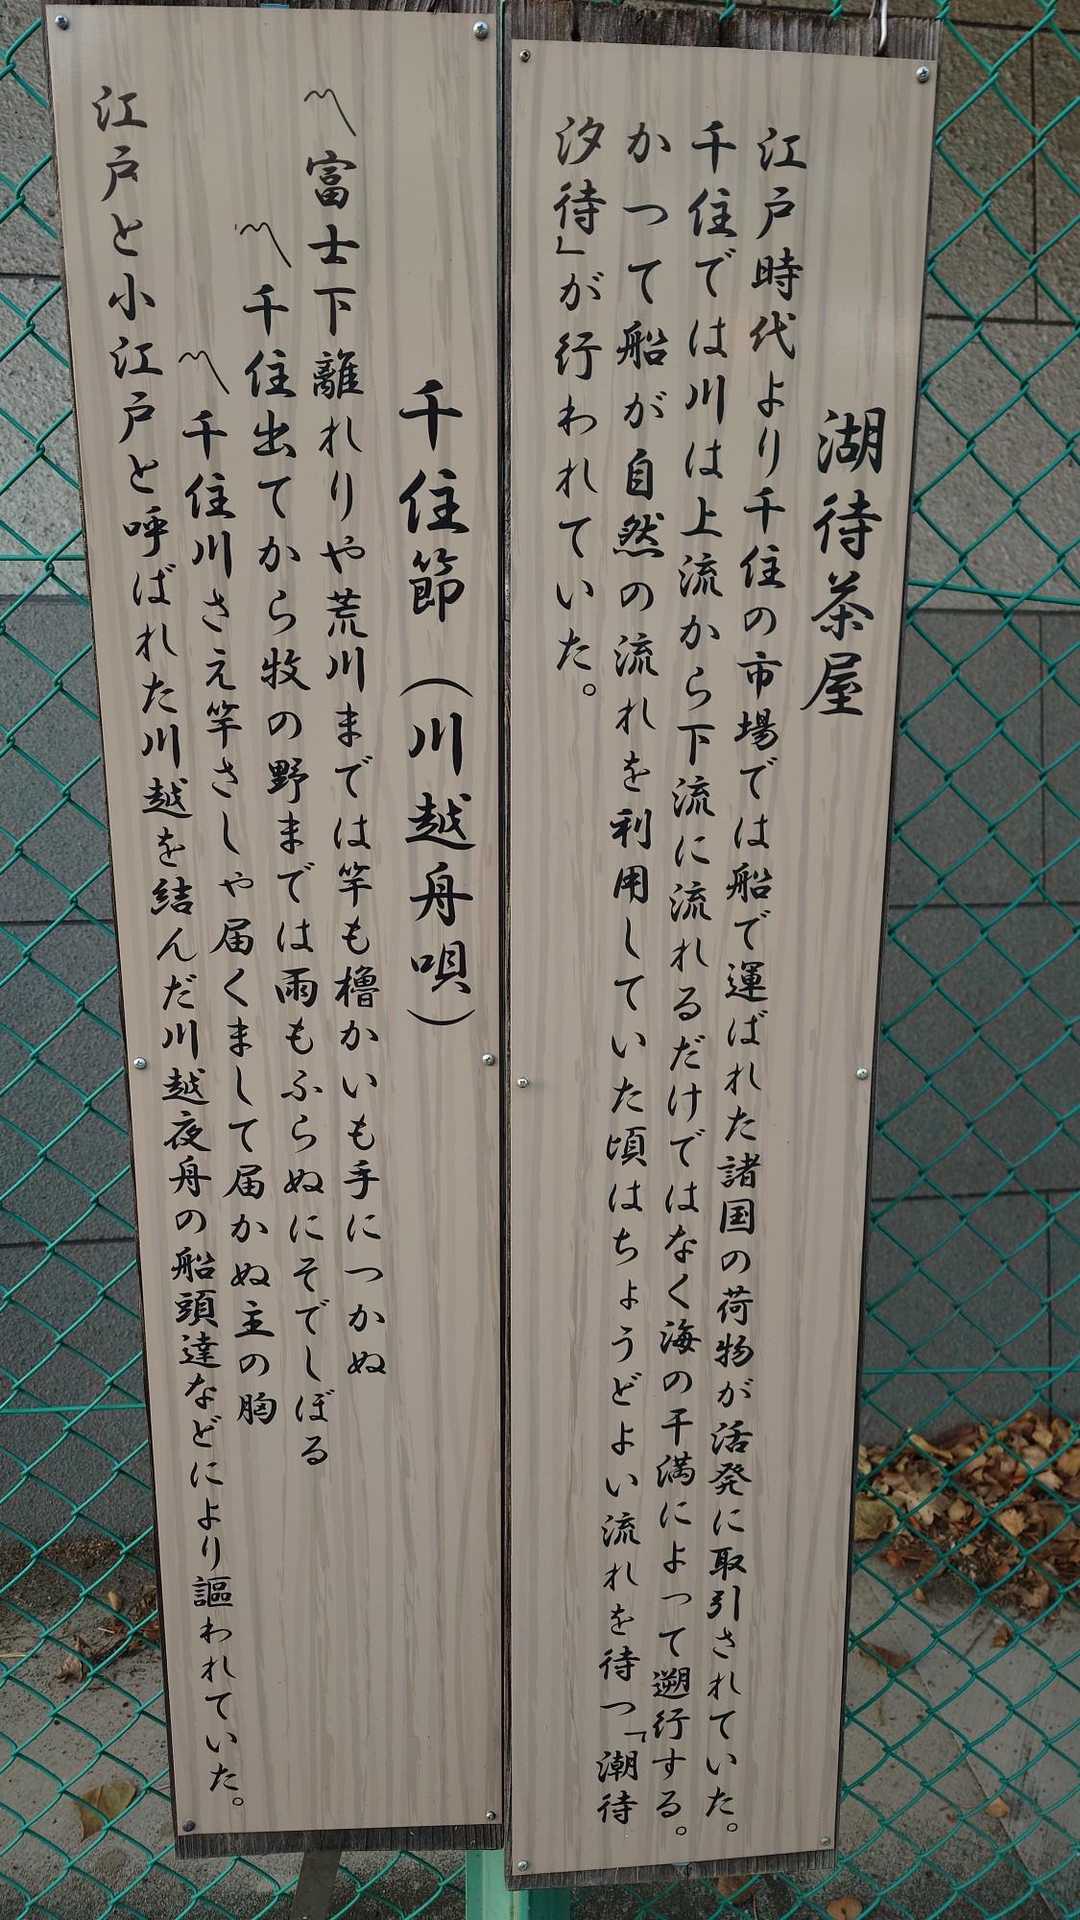 湖待茶屋
江戸時代より千住の市場では船で運ばれた諸国の荷物が活発に取引されていた。
千住では川は上流から下流に流れるだけではなく海の干満によって遡行する。
かつて船が自然の流れを利用していた頃はちょうどよい流れを待つ「潮待
汐待」が行われていた。
千住節（川越舟唄）
〽富士下離れりや荒川までは竿も櫓かいも手につかぬ
〽千住出てから牧の野までは雨もふらぬにそでしぼる
〽千住川さえ竿さしや届くまして届かぬ主の胸
江戸と小江戸と呼ばれた川越を結んだ川越夜舟の船頭達などにより謳われていた。